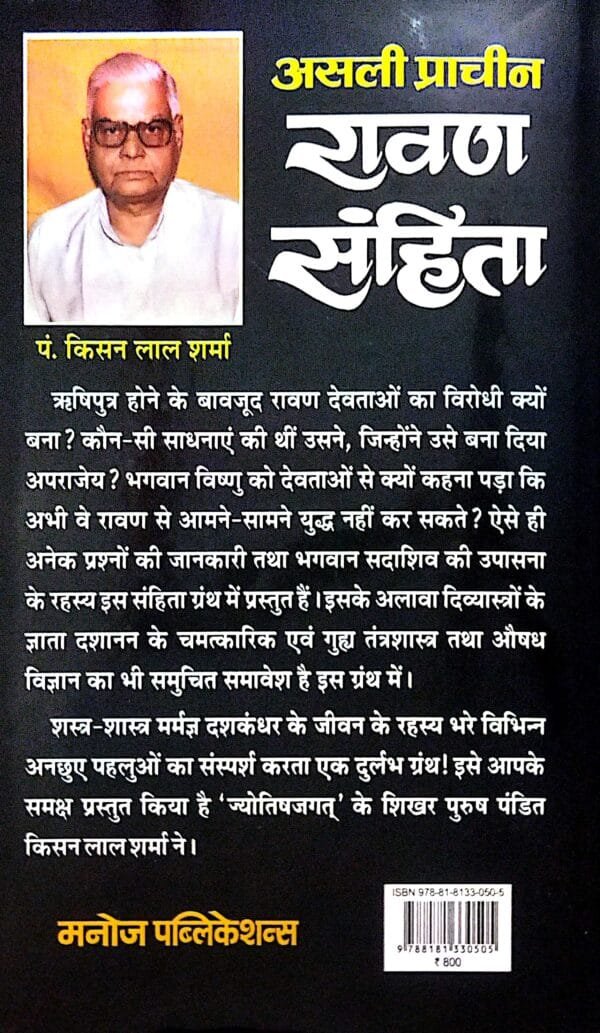 असली प्राचीन
रावण
संहिता
पं. किसन लाल शर्मा
ऋषिपुत्र होने के बावजूद रावण देवताओं का विरोधी क्यों
बना? कौन-सी साधनाएं की थीं उसने, जिन्होंने उसे बना दिया
अपराजेय? भगवान विष्णु को देवताओं से क्यों कहना पड़ा कि
अभी वे रावण से आमने-सामने युद्ध नहीं कर सकते? ऐसे ही
अनेक प्रश्नों की जानकारी तथा भगवान सदाशिव की उपासना
के रहस्य इस संहिता ग्रंथ में प्रस्तुत हैं। इसके अलावा दिव्यास्त्रों के
ज्ञाता दशानन के चमत्कारिक एवं गुह्य तंत्रशास्त्र तथा औषध
विज्ञान का भी समुचित समावेश है इस ग्रंथ में।
शस्त्र-शास्त्र मर्मज्ञ दशकंधर के जीवन के रहस्य भरे विभिन्न
अनछुए पहलुओं का संस्पर्श करता एक दुर्लभ ग्रंथ! इसे आपके
समक्ष प्रस्तुत किया है 'ज्योतिषजगत्' के शिखर पुरुष पंडित
किसन लाल शर्मा ने।
मनोज पब्लिकेशन्स
ISBN 978-81-8133-050-5
9 788181 330505
₹ 800